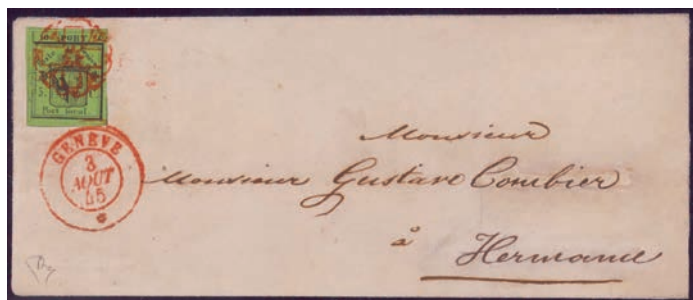 Port local
GENÈVE
3
AOUT
45
Monsieur
Monsieur Gustave Combier
à
Hermance